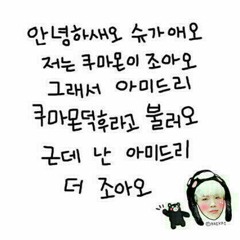 안녕하새오 슈가애오
저는 쿠마몬이 조아오
그래서 아미드리
쿠마몬덕후라고 불러오
근데 난 아미드리
더 조아오